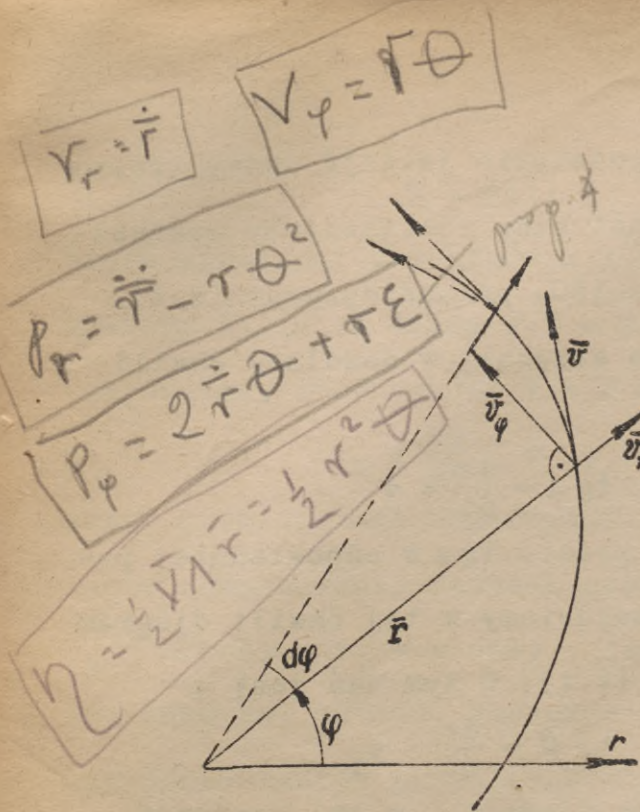 v_r = ṙ
V_φ = rθ
p_r = r̈ - rθ²
p_φ = 2ṙθ + rε
η = ½ v̄ ∧ r̄ = ½ r² θ
v̄
v̄_φ
v̄_r
r̄
dφ
φ
r